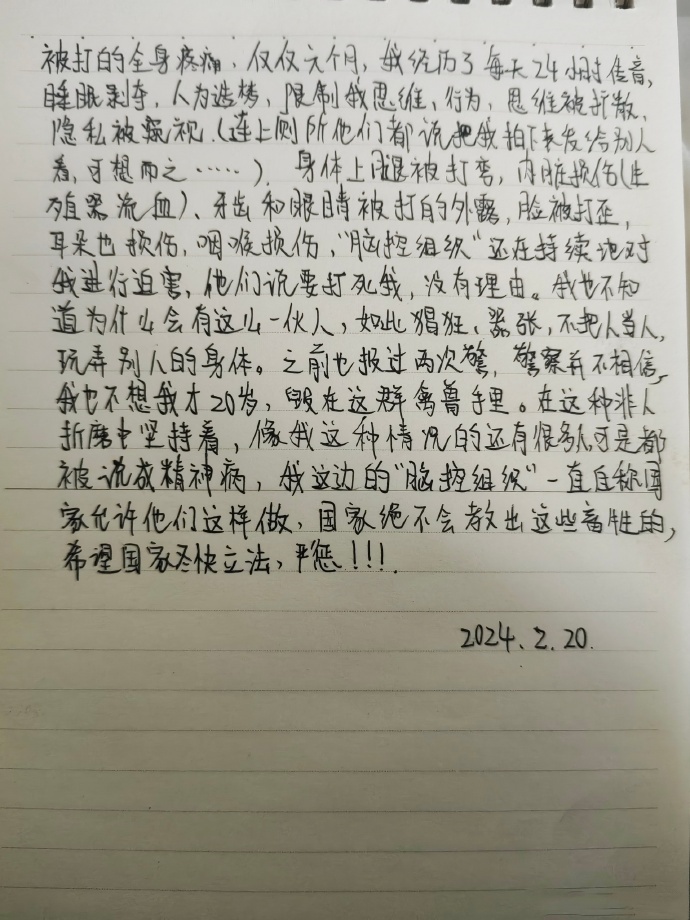 被打的全身疼痛，仅仅六个月，我经历了每天24小时传音，
睡眠剥夺，人为造梦，限制我思维，行为，思维被打散，
隐私被窥视（连上厕所他们都说把我拍下来发给别人
看，可想而之……），身体上腿被打弯，内脏损伤（生
殖器流血）、牙齿和眼睛被打的外露，脸被打歪，
耳朵也损伤，咽喉损伤，“脑控组织”还在持续地对
我进行迫害，他们说要打死我，没有理由。我也不知
道为什么会有这么一伙人，如此猖狂、嚣张，不把人当人，
玩弄别人的身体。之前也报过两次警，警察并不相信，
我也不想我才20岁，毁在这群禽兽手里。在这种非人
折磨中坚持着，像我这种情况的还有很多人可是都
被说成精神病，我这边的“脑控组织”一直自称国
家允许他们这样做，国家绝不会教出这些畜牲的，
希望国家尽快立法，严惩！！！．
2024.2.20.